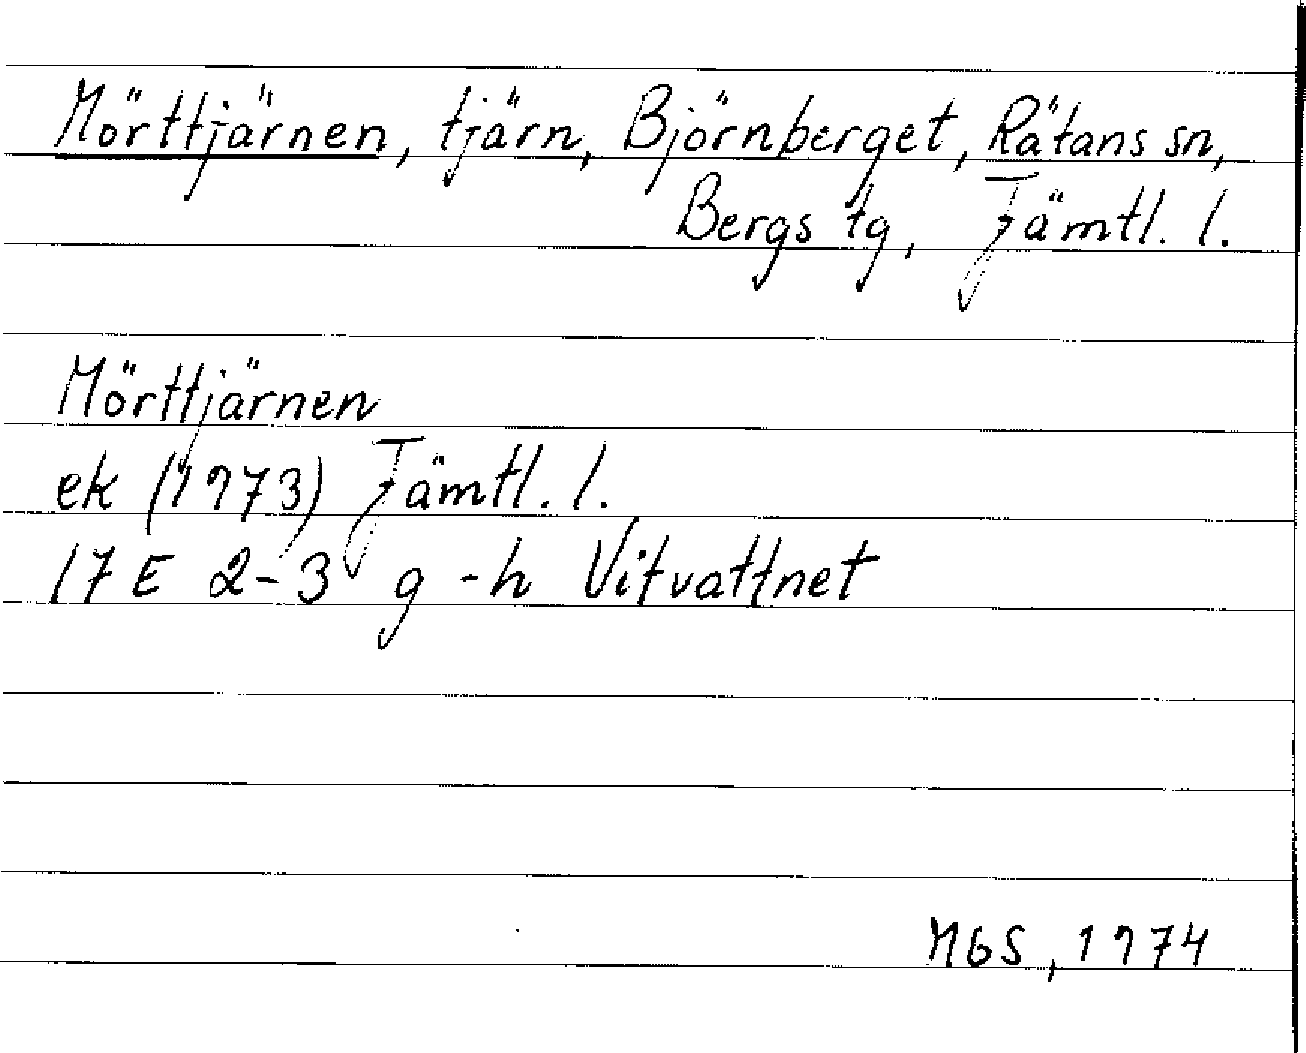 Mörttjärnen, tjärn, Björnberget, Rätans sn,
Bergs tg, Jämtl. l.
Mörttjärnen
ek (1973) Jämtl. l.
17 E 2-3 g-h Vitvattnet
MbS, 1974